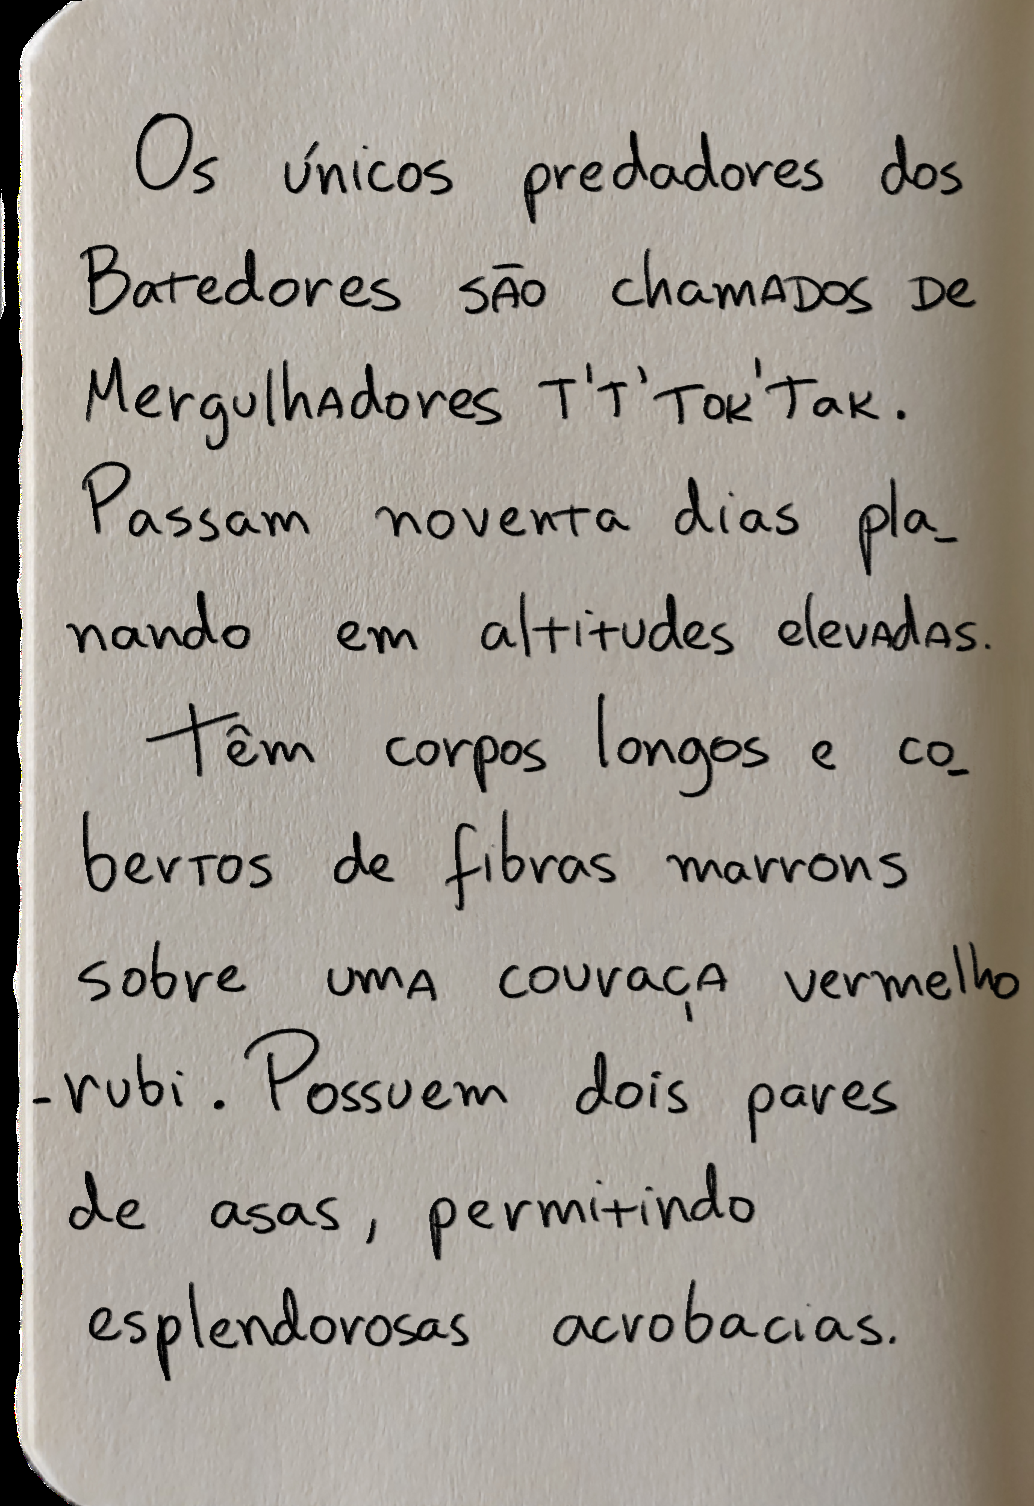 Os únicos predadores dos
Batedores são chamados de
Mergulhadores T'T'Tok'Tak.
Passam noventa dias pla-
nando em altitudes elevadas.
Têm corpos longos e co-
bertos de fibras marrons
sobre uma couraça vermelho
-rubi. Possuem dois pares
de asas, permitindo
esplendorosas acrobacias.